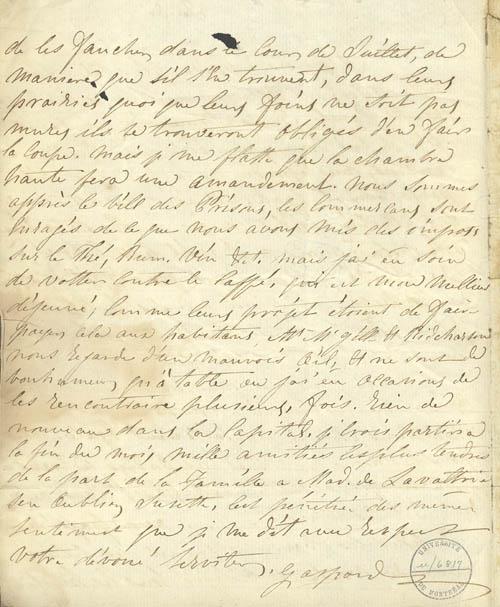 de les faucher, dans le cour, de Juillet, de
maniere, que s'il s'en trouvent, dans leurs
prairies, quoi que leurs foins ne soit pas
mures ils se trouveront obligés d'en fair
la coupe. mais je me flatte que la chambre
haute fera une amandement. nous sommes
apprès le bill des Prisons, les Commercans sont
enragés de ce que nous avons mis des impots
sur le Thé, Rum. Vin &c. mais j'ai eu soin
de votter contre le Caffé, qui est mon meilleur
déjeuné; Comme leurs projet étoient de fair
payer cela aux habitans Mr. McGill & Richardson
nous regarde d'un mauvois Œil, & ne sont de
bonhumeur, qu'à table ou j'ai eu occasions de
les rencontraire plusieurs, fois. Rien de
nouveau dans la Capital, je crois partir a
la fin du mois, mille amitiés les plus tendres
de la part de la famille a Mad. de Lavaltrie
sen oublier Susette, est pénétrée des même
sentiment que je me dit avec Respect
votre dévoué Serviteur. Gaspard
UNIVERSITÉ
DE MONTRÉAL